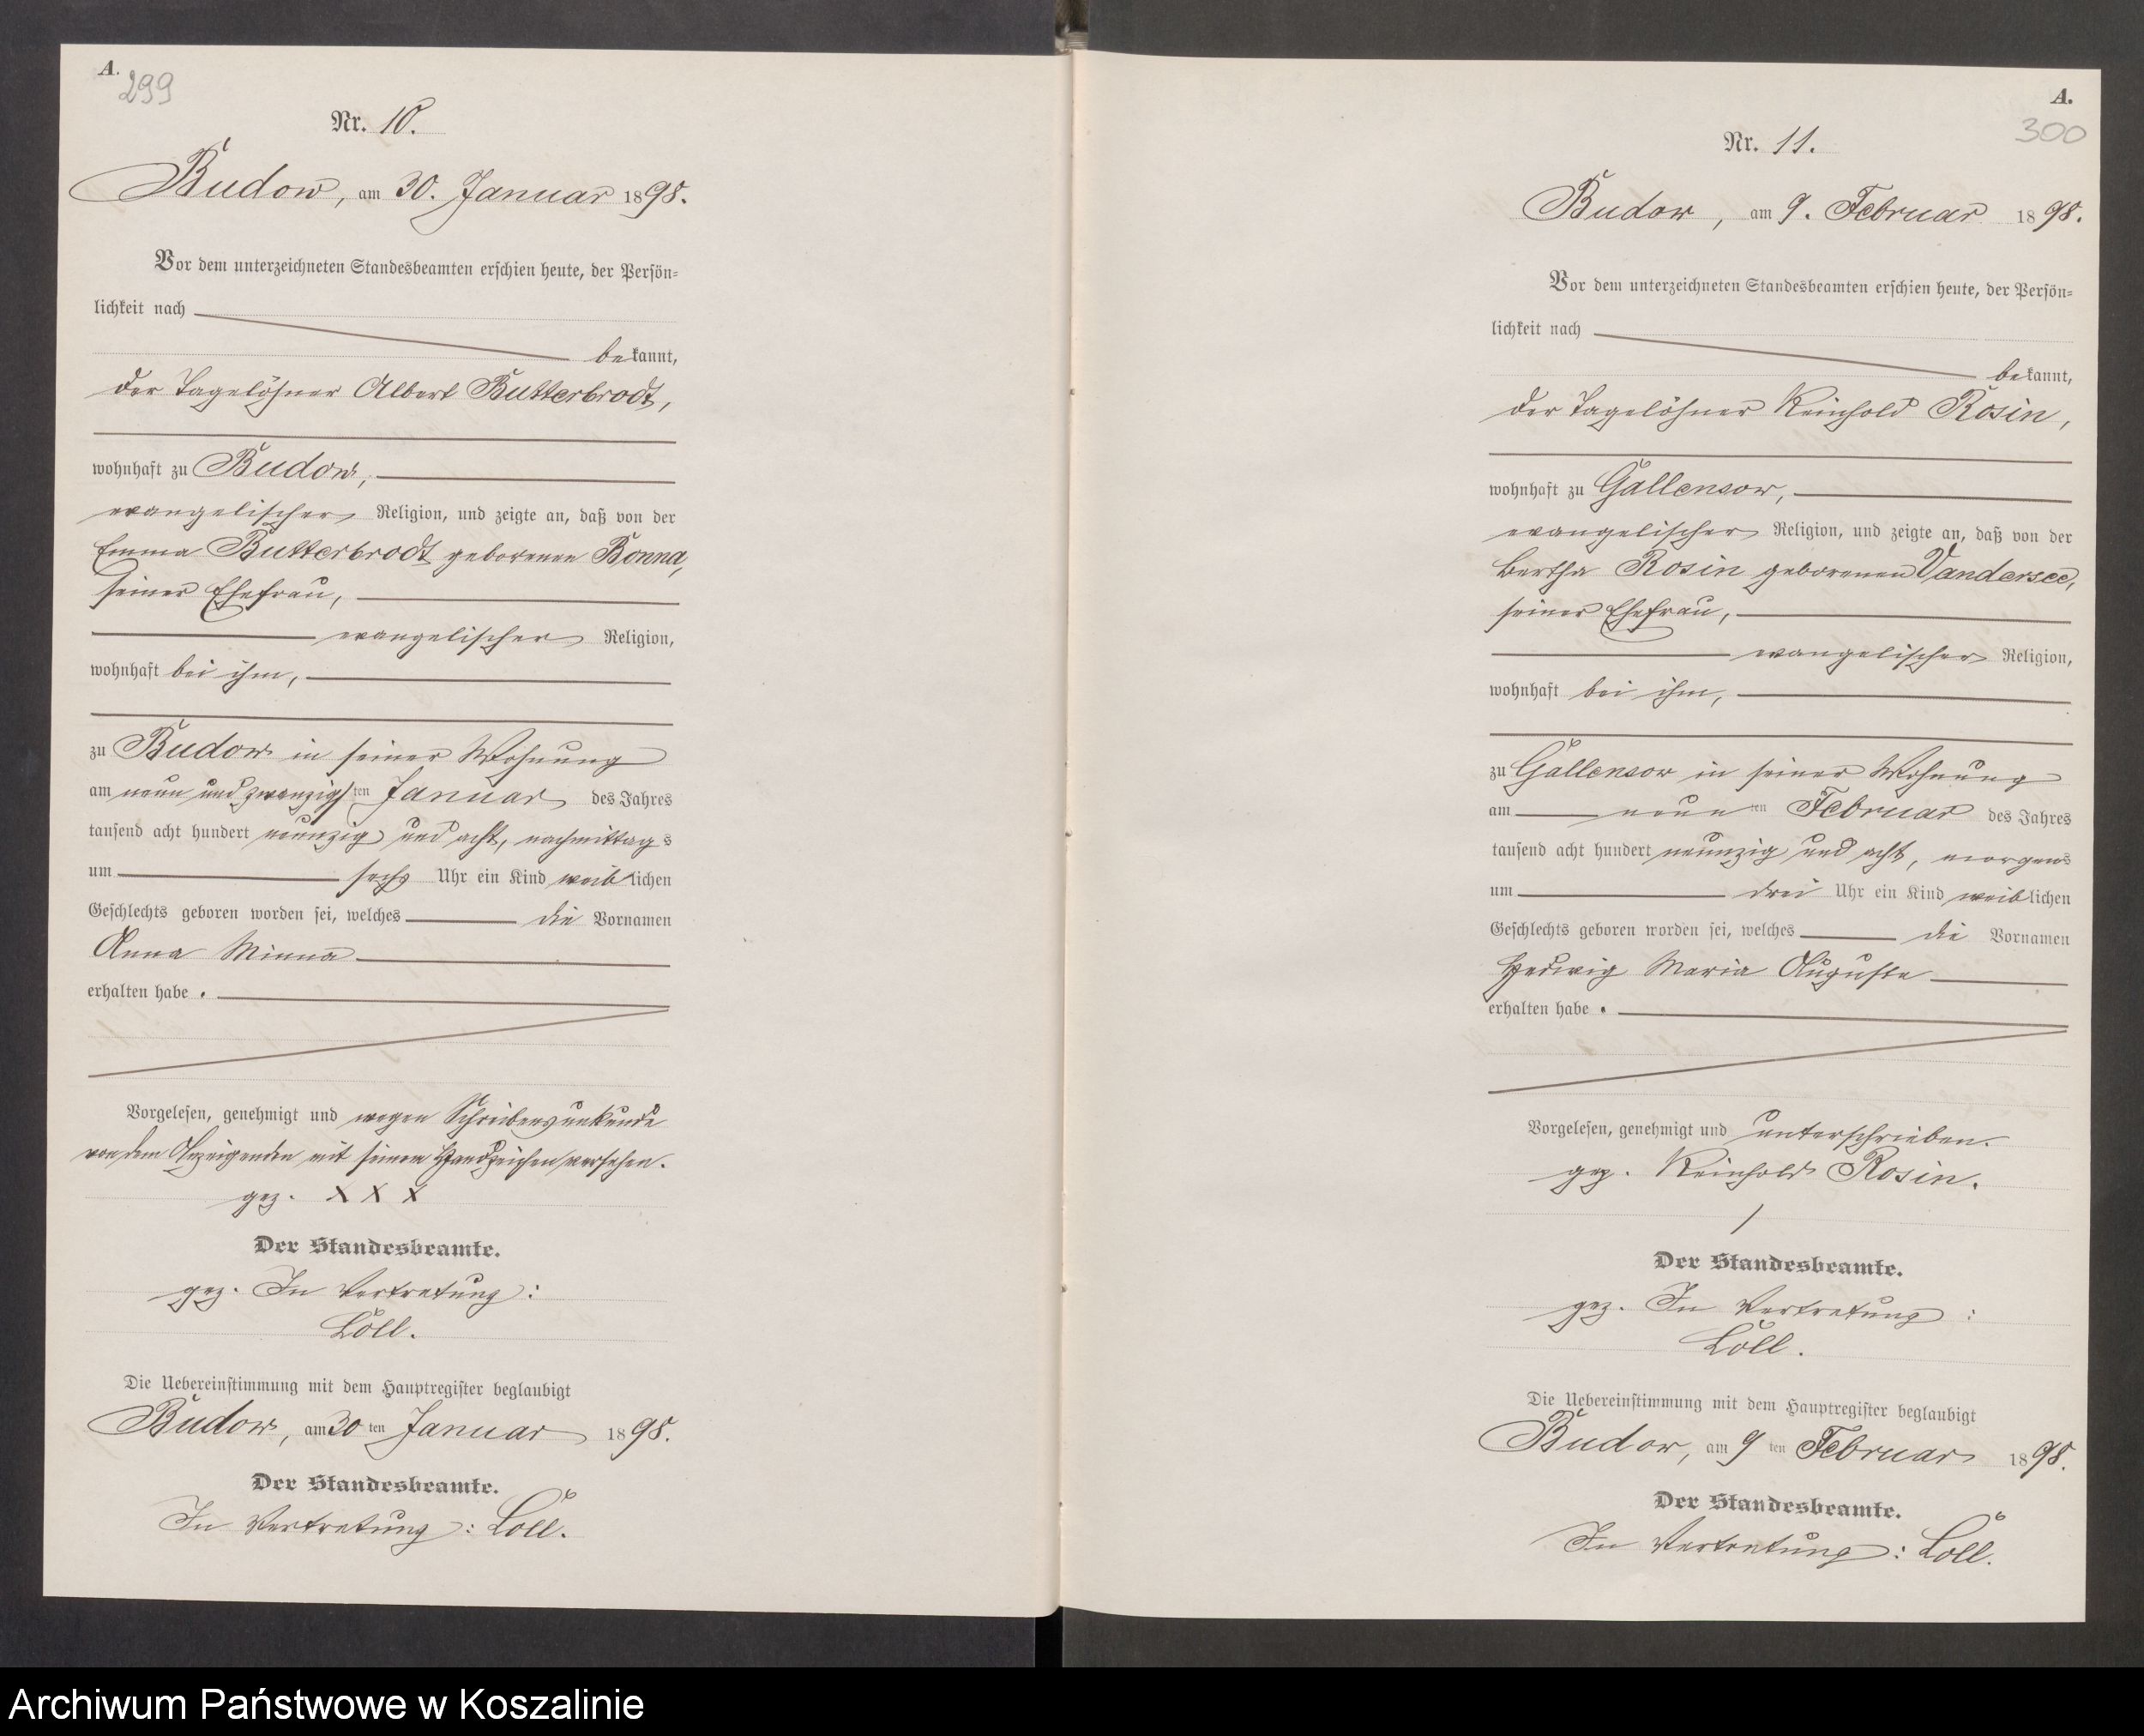 A.
299
Nr. 10.
Budow, am 30. Januar 1898.
Vor dem unterzeichneten Standesbeamten erschien heute, der Persön-
lichkeit nach
bekannt,
der Tagelöhner Albert Butterbrodt,
wohnhaft zu Budow,
evangelischer Religion, und zeigte an, daß von der
Emma Butterbrodt geborenen Bonna,
seiner Ehefrau,
evangelischer Religion,
wohnhaft bei ihm,
zu Budow in seiner Wohnung
am neun und zwanzigsten Januar des Jahres
tausend acht hundert neunzig und acht, nachmittags
um sechs Uhr ein Kind weiblichen
Geschlechts geboren worden sei, welches die Vornamen
Anna Minna
erhalten habe.
Vorgelesen, genehmigt und wegen Schreibensunkunde
von dem Anzeigenden mit seinem Handzeichen versehen.
gez. X X X
Der Standesbeamte.
gez. In Vertretung:
Löll.
Die Uebereinstimmung mit dem Hauptregister beglaubigt
Budow, am 30ten Januar 1898.
Der Standesbeamte.
In Vertretung: Löll.
A.
300
Nr. 11.
Budow, am 9. Februar 1898.
Vor dem unterzeichneten Standesbeamten erschien heute, der Persön-
lichkeit nach
bekannt,
der Tagelöhner Reinhold Rosin,
wohnhaft zu Gallensow,
evangelischer Religion, und zeigte an, daß von der
Bertha Rosin geborenen Vandersee,
seiner Ehefrau,
evangelischer Religion,
wohnhaft bei ihm,
zu Gallensow in seiner Wohnung
am neunten Februar des Jahres
tausend acht hundert neunzig und acht, morgens
um drei Uhr ein Kind weiblichen
Geschlechts geboren worden sei, welches die Vornamen
Hedwig Maria Auguste
erhalten habe.
Vorgelesen, genehmigt und unterschrieben.
gez. Reinhold Rosin.
Der Standesbeamte.
gez. In Vertretung:
Löll.
Die Uebereinstimmung mit dem Hauptregister beglaubigt
Budow, am 9ten Februar 1898.
Der Standesbeamte.
In Vertretung: Löll.
Archiwum Państwowe w Koszalinie